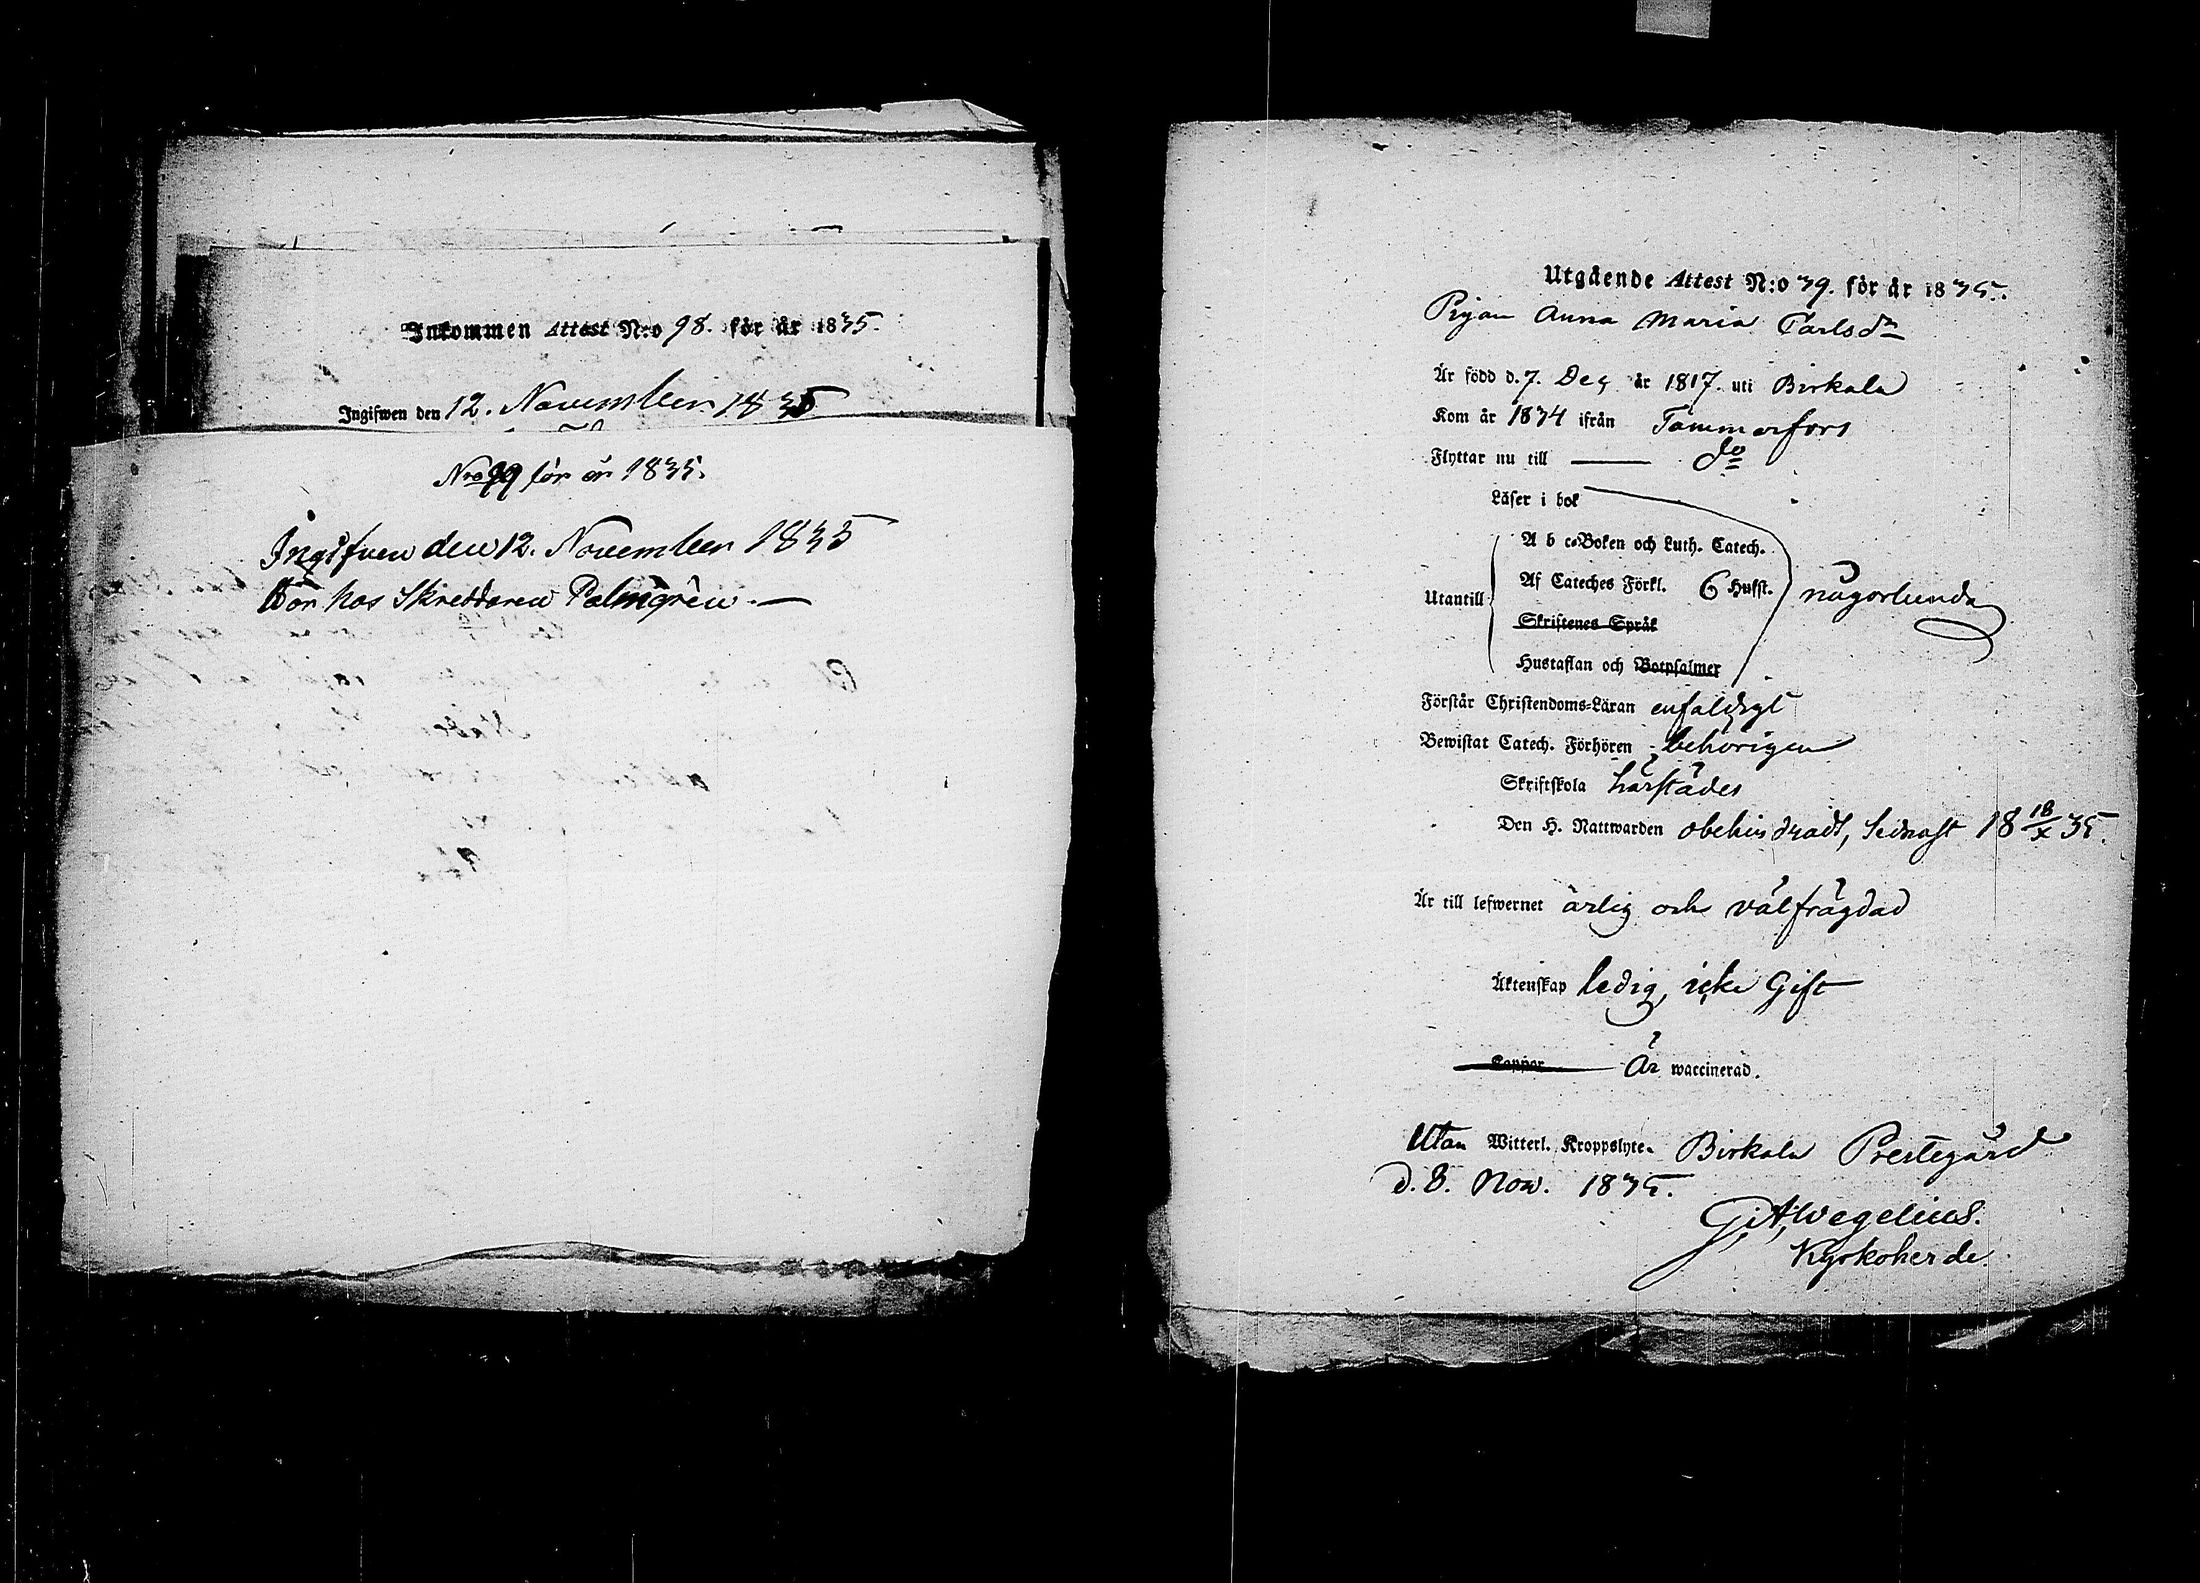 Inkommen Attest N:o 98. för år 1835.
Ingifwen den 12. November 1835
Nro 99 för år 1835.
Ingifven den 12. November 1835
Bor hos Skreddaren Palmgrén. —
Utgående Attest N:o 39. för år 1835.
Pigan Anna Maria Carlsdr
Är född d. 7. Dec. år 1817. uti Birkala
Kom år 1834 ifrån Tammerfors
Flyttar nu till — do
Läser i bok
A b c-Boken och Luth. Catech.
Utantill Af Cateches Förkl. 6 Hufst. någorlunda
Skriftenes Språk
Hustaflan och Botpsalmer
Förstår Christendoms-Läran enfaldigt
Bewistat Catech. Förhören behörigen
Skriftskola härstädes
Den H. Nattwarden obehindradt, sednast 18 18/X 35.
Är till lefwernet ärlig och välfrägdad
Äktenskap ledig, icke Gift
Koppor Är waccinerad.
Utan Witterl. Kroppslyte. Birkala Prestegård
d. 8. Nov. 1835.
G. A. Wegelius.
Kyrkoherde.